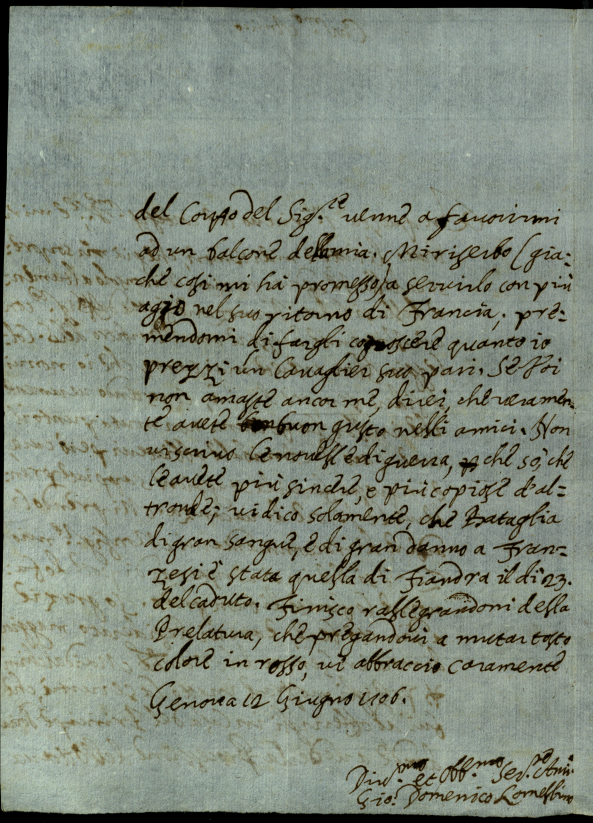 del Corpo del Sig.re venne a favorirmi
ad un balcone della mia. Mi riserbo (gia-
che cosi mi hà promesso) a servirlo con più
agio nel suo ritorno di Francia, pre-
mendomi di fargli conoscere quanto io
prezzi un Cavaglier suo pari. Se Voi
non amaste ancor me, direi, che veramen-
te avete buon gusto nelli amici. Non
vi scrivo le novelle di guerra, che sò, che
le avete più sincere, e più copiose d'al-
tronde; vi dico solamente, che Battaglia
di gran sangue, e di gran danno a Fran-
zesi è stata quella di Fiandra il di 23.
del caduto. Finisco rallegrandomi della
Prelatura, che pregandovi a mutar tosto
colore in rosso, vi abbraccio caramente
Genova 12 Giugno 1706.
Div.mo et Obb.mo Ser.re Am.
Gio. Domenico Lomellino